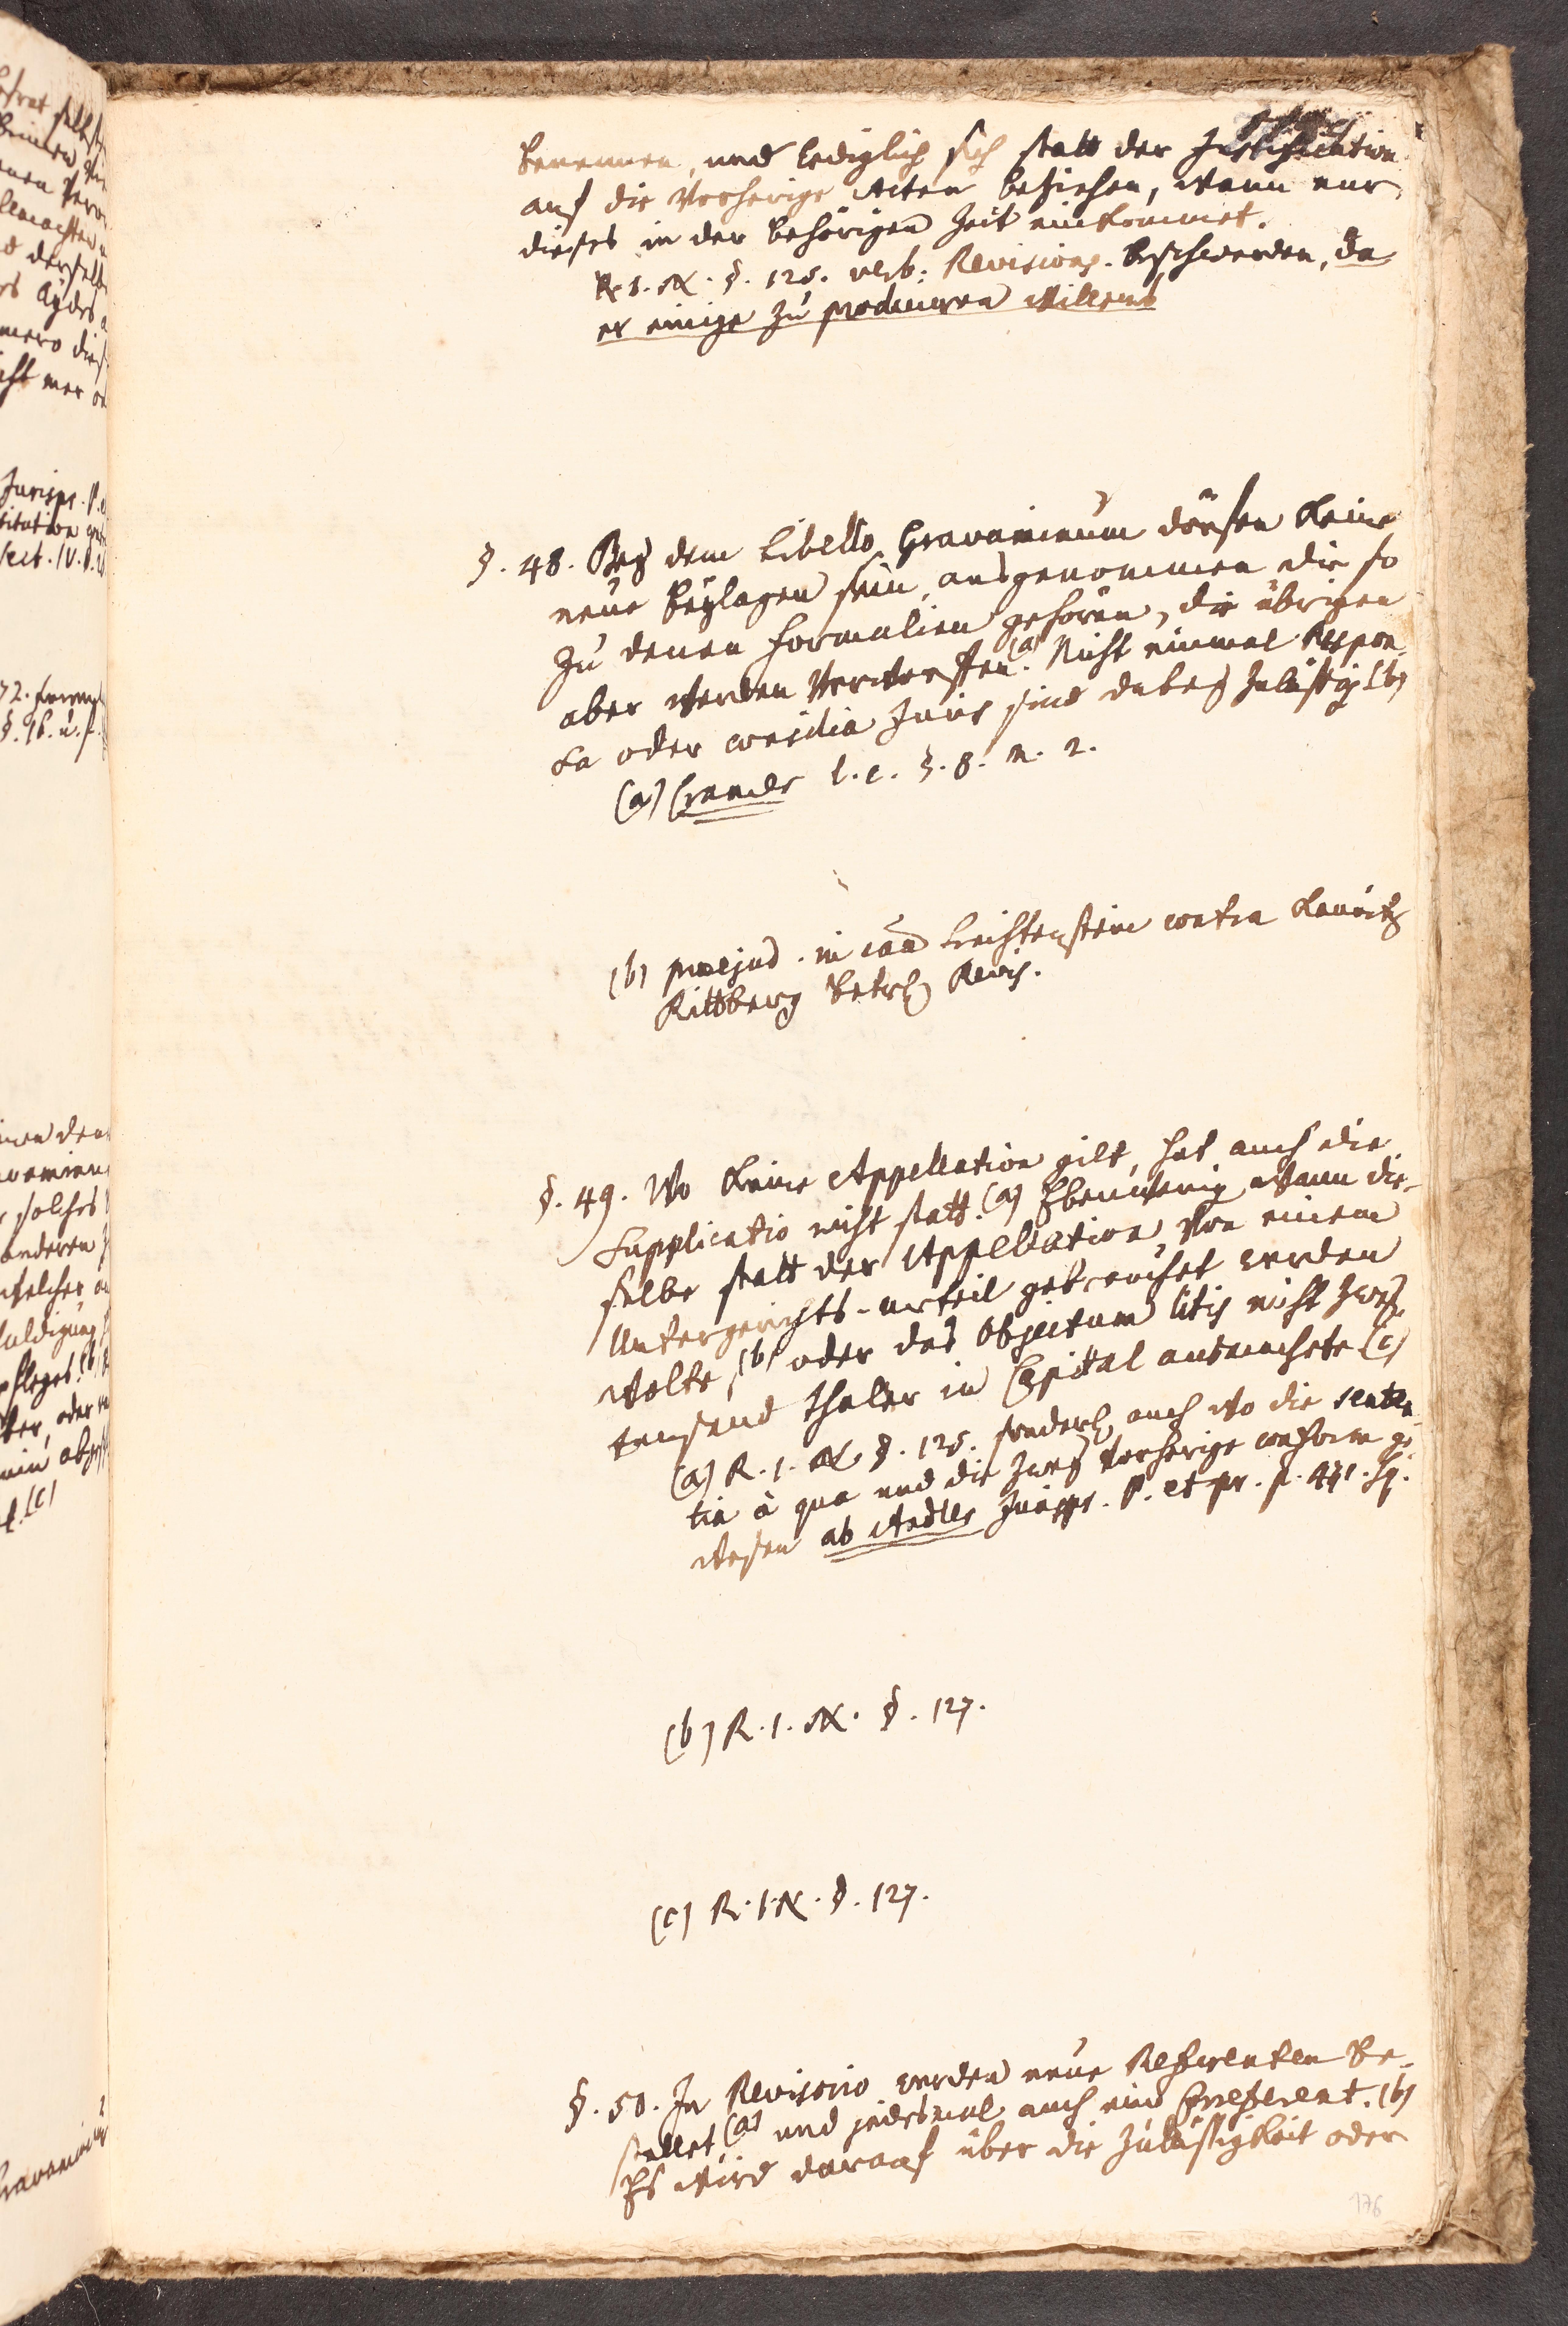 benennen, und lediglich sich statt der Justification
auf die vorherige Acten beziehen, wann nur
dieses in der behörigen Zeit einkommet.
R. I. N. §. 125. verb: Revisions-beschwerden, da
er einige zu produciren willens
§. 48. Bey dem Libello Gravaminum dörfen keine
neue beylagen sein, ausgenommen die so
zu denen formalien gehören, die übrigen
aber werden verworffen. (a) Nicht einmal Respon-
sa oder consilia Juris sind dabey zuläßig (b)
(a) Cramer l. c. §. 8. n. 2.
(b) praejud. in caa Liechtenstein contra Kaunitz
Rittberg betrf Revis.
§. 49. Wo keine Appellation gilt, hat auch die
Supplicatio nicht statt. (a) Ebenwenig wann die-
selbe statt der Appellation von einem
Untergerichts-urteil gebrauchet werden
wolte, (b) oder das Objectum litis nicht zwey
tausend thaler in Capital ausmachete (c)
(a) R. I. N. §. 125. sonderl. auch wo die senten-
tia à qua und die zwey vorherige conform ge-
wesen ab Andler Jurispr. P. et pr. p. 491. sq.
(b) R. I. N. §. 127.
(c) R. I. N. §. 127.
§. 50. In Revisorio werden neue Referenten be-
stellet (a) und jedesmal auch ein Correferent. (b)
Es wird darauf über die Zuläßigkeit oder
176